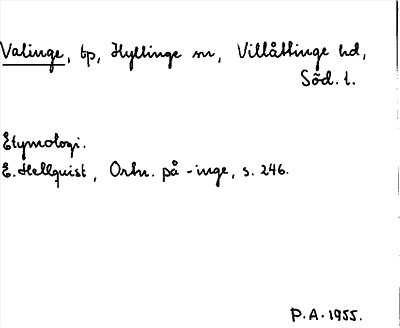 Valinge, bp, Hyltinge sn, Villåttinge hd,
Söd. l.
Etymologi.
E. Hellquist, Ortn. på -inge, s. 246.
P.A. 1955.